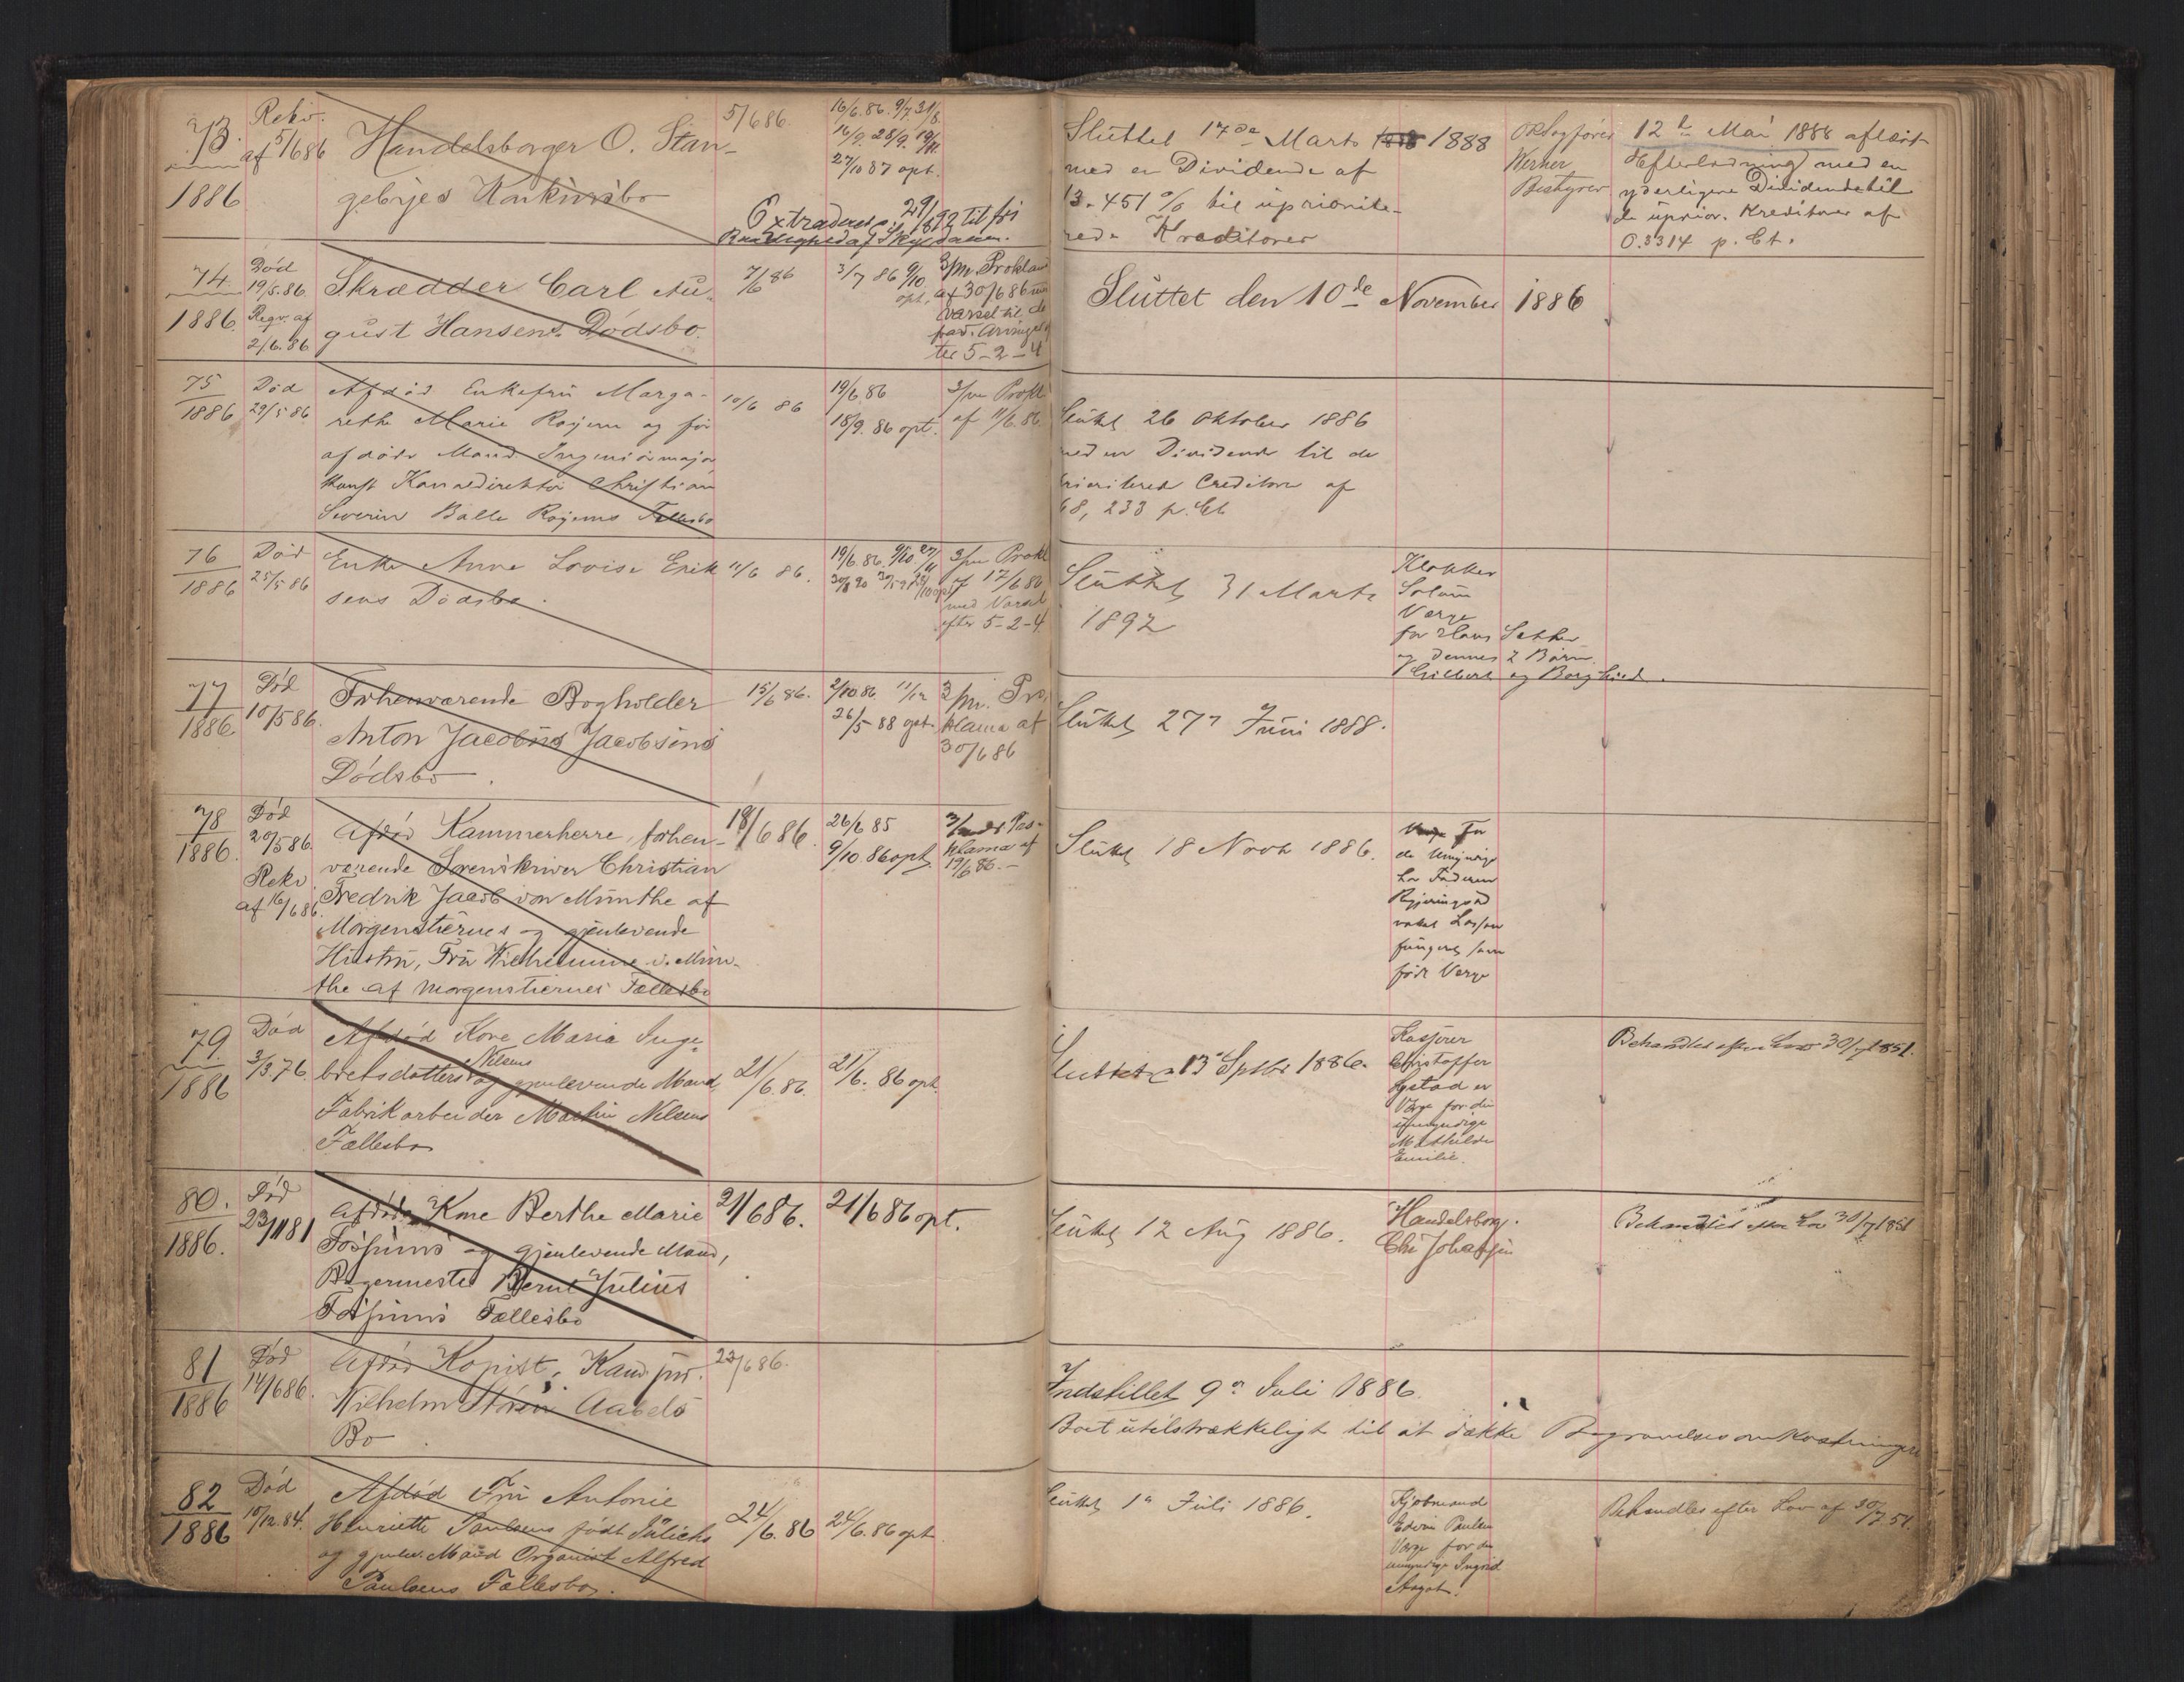 73.
1886
Rekv.
af 5/6 86
Handelsborger O. Stan-
gebyes Konkursbo
5/6 86.
16/6. 86. 9/7. 31/8.
16/9. 28/9. 19/11.
27/10 87 opt.
Extraderet 29/1 1892 til fri
Raadighed af Skyldneren.
Sluttet 17de Marts 1888
med en Dividende af
13.451 % til uprioite-
rede Kreditorer
ORSagfører
Werner
Bestyrer
12te Mai 1888 aflæst
Efterlodning med en
yderligere Dividende til
de uprior. Kreditorer af
0.3314 p. Ct.
74.
1886.
Død
19/5.86.
Reqv. af
2/6.86
Skrædder Carl Au-
gust Hansens Dødsbo.
7/6 86
3/7 86 9/10
opt.
3/m. Proklama
af 30/6 86 med
Varsel til de
fravr. Arvinger
ter 5-2-4
Sluttet den 10de November 1886
75
1886
Død
29/5 86
Afdød Enkefru Marga-
rethe Marie Røyem og før
afdøde Mand Ingeniørmajor
Kanaldirektør Christian
Severin Balle Røyems Fællesbo
10/6 86
19/6.86
18/9. 86 opt.
3/m Prokl
af 11/6.86.
Sluttet 26 Oktober 1886
med en Dividende til de
prioriterede Creditorer af
68,233 p. Ct
76
1886
Død
25/5 86
Enke Anne Lovise Erik
sens Dødsbo.
11/6 86.
19/6.86. 9/10 27/11
3/m Prokl
af 17/6 86
med Varsel
efter 5-2-4
Sluttet 31 Marts
1892
Klokker
Solum
Værge
for Hans Sætter
og dennes 2 Børn
77
1886.
Død
10/5 86.
Forhenværende Bogholder
Anton Jacobus Jacobsens
Dødsbo.
15/6 86.
2/10.86. 11/12
26/5 88 opt.
3/m. Pro
klama af
30/6 86
Sluttet 27de Juni 1888.
78
1886.
Død
20/5 86.
Rekv.
af 16/6 86.
Afdød Kammerherre, forhen-
værende Sorenskriver Christian
Fredrik Jacob von Munthe af
Morgenstiernes og gjenlevende
Hustru, Fru Wilhelmine v. Mun-
the af Morgenstiernes Fællesbo
18/6 86.
26/6 85
9/10.86 opt.
3/mds Pro-
klama af
19/6 86.-
Sluttet 18 Novbr 1886.
For
de Umyndige
har Faderen
fungeret som
født Værge
79.
1886
Død
3/3.76.
Afdød Kone Maria Inge-
bretsdatters Nilsens og gjenlevende Mand,
Fabrikarbeider Martin Nilsens
Fællesbo
21/6.86.
21/6. 86 opt.
Sluttet 13 Septbr 1886.
Kasserer
Christoffer
Ystad er
Værge for den
umyndige
Mathilde
Emilie.
Behandles efter Lov 30/7 1851.
80.
1886.
Død
23/11 81
Afdøde Kone Berthe Marie
Fossums og gjenlevende Mand,
Bagermester Bernt Julius
Fossums Fællesbo
21/6 86.
21/6 86 opt.
Sluttet 12 Aug 1886.
Handelsborg.
Chr Johansen
Behandles efter Lov 30/7 1851
81
1886
Død
14/6 86.
Afdød Kopist, Kand jur.
Wilhelm Støren Aabels
Bo
23/6 86.
Indstillet 9de Juli 1886.
Boet utilstrækkeligt til at dække Begravelsesomkostningerne
82
1886
Død
10/12.84.
Afdød Fru Antonie
Henriette Paulsens født Jülichs
og gjenlev. Mand Organist Alfred
Paulsens Fællesbo.
24/6.86
24/6.86 opt
Sluttet 1ste Juli 1886.
Kjøbmand
Edvin Paulsen
Værge for den
umyndige Ingrid
Aagot.
Behandles efter Lov af 30/7 51.